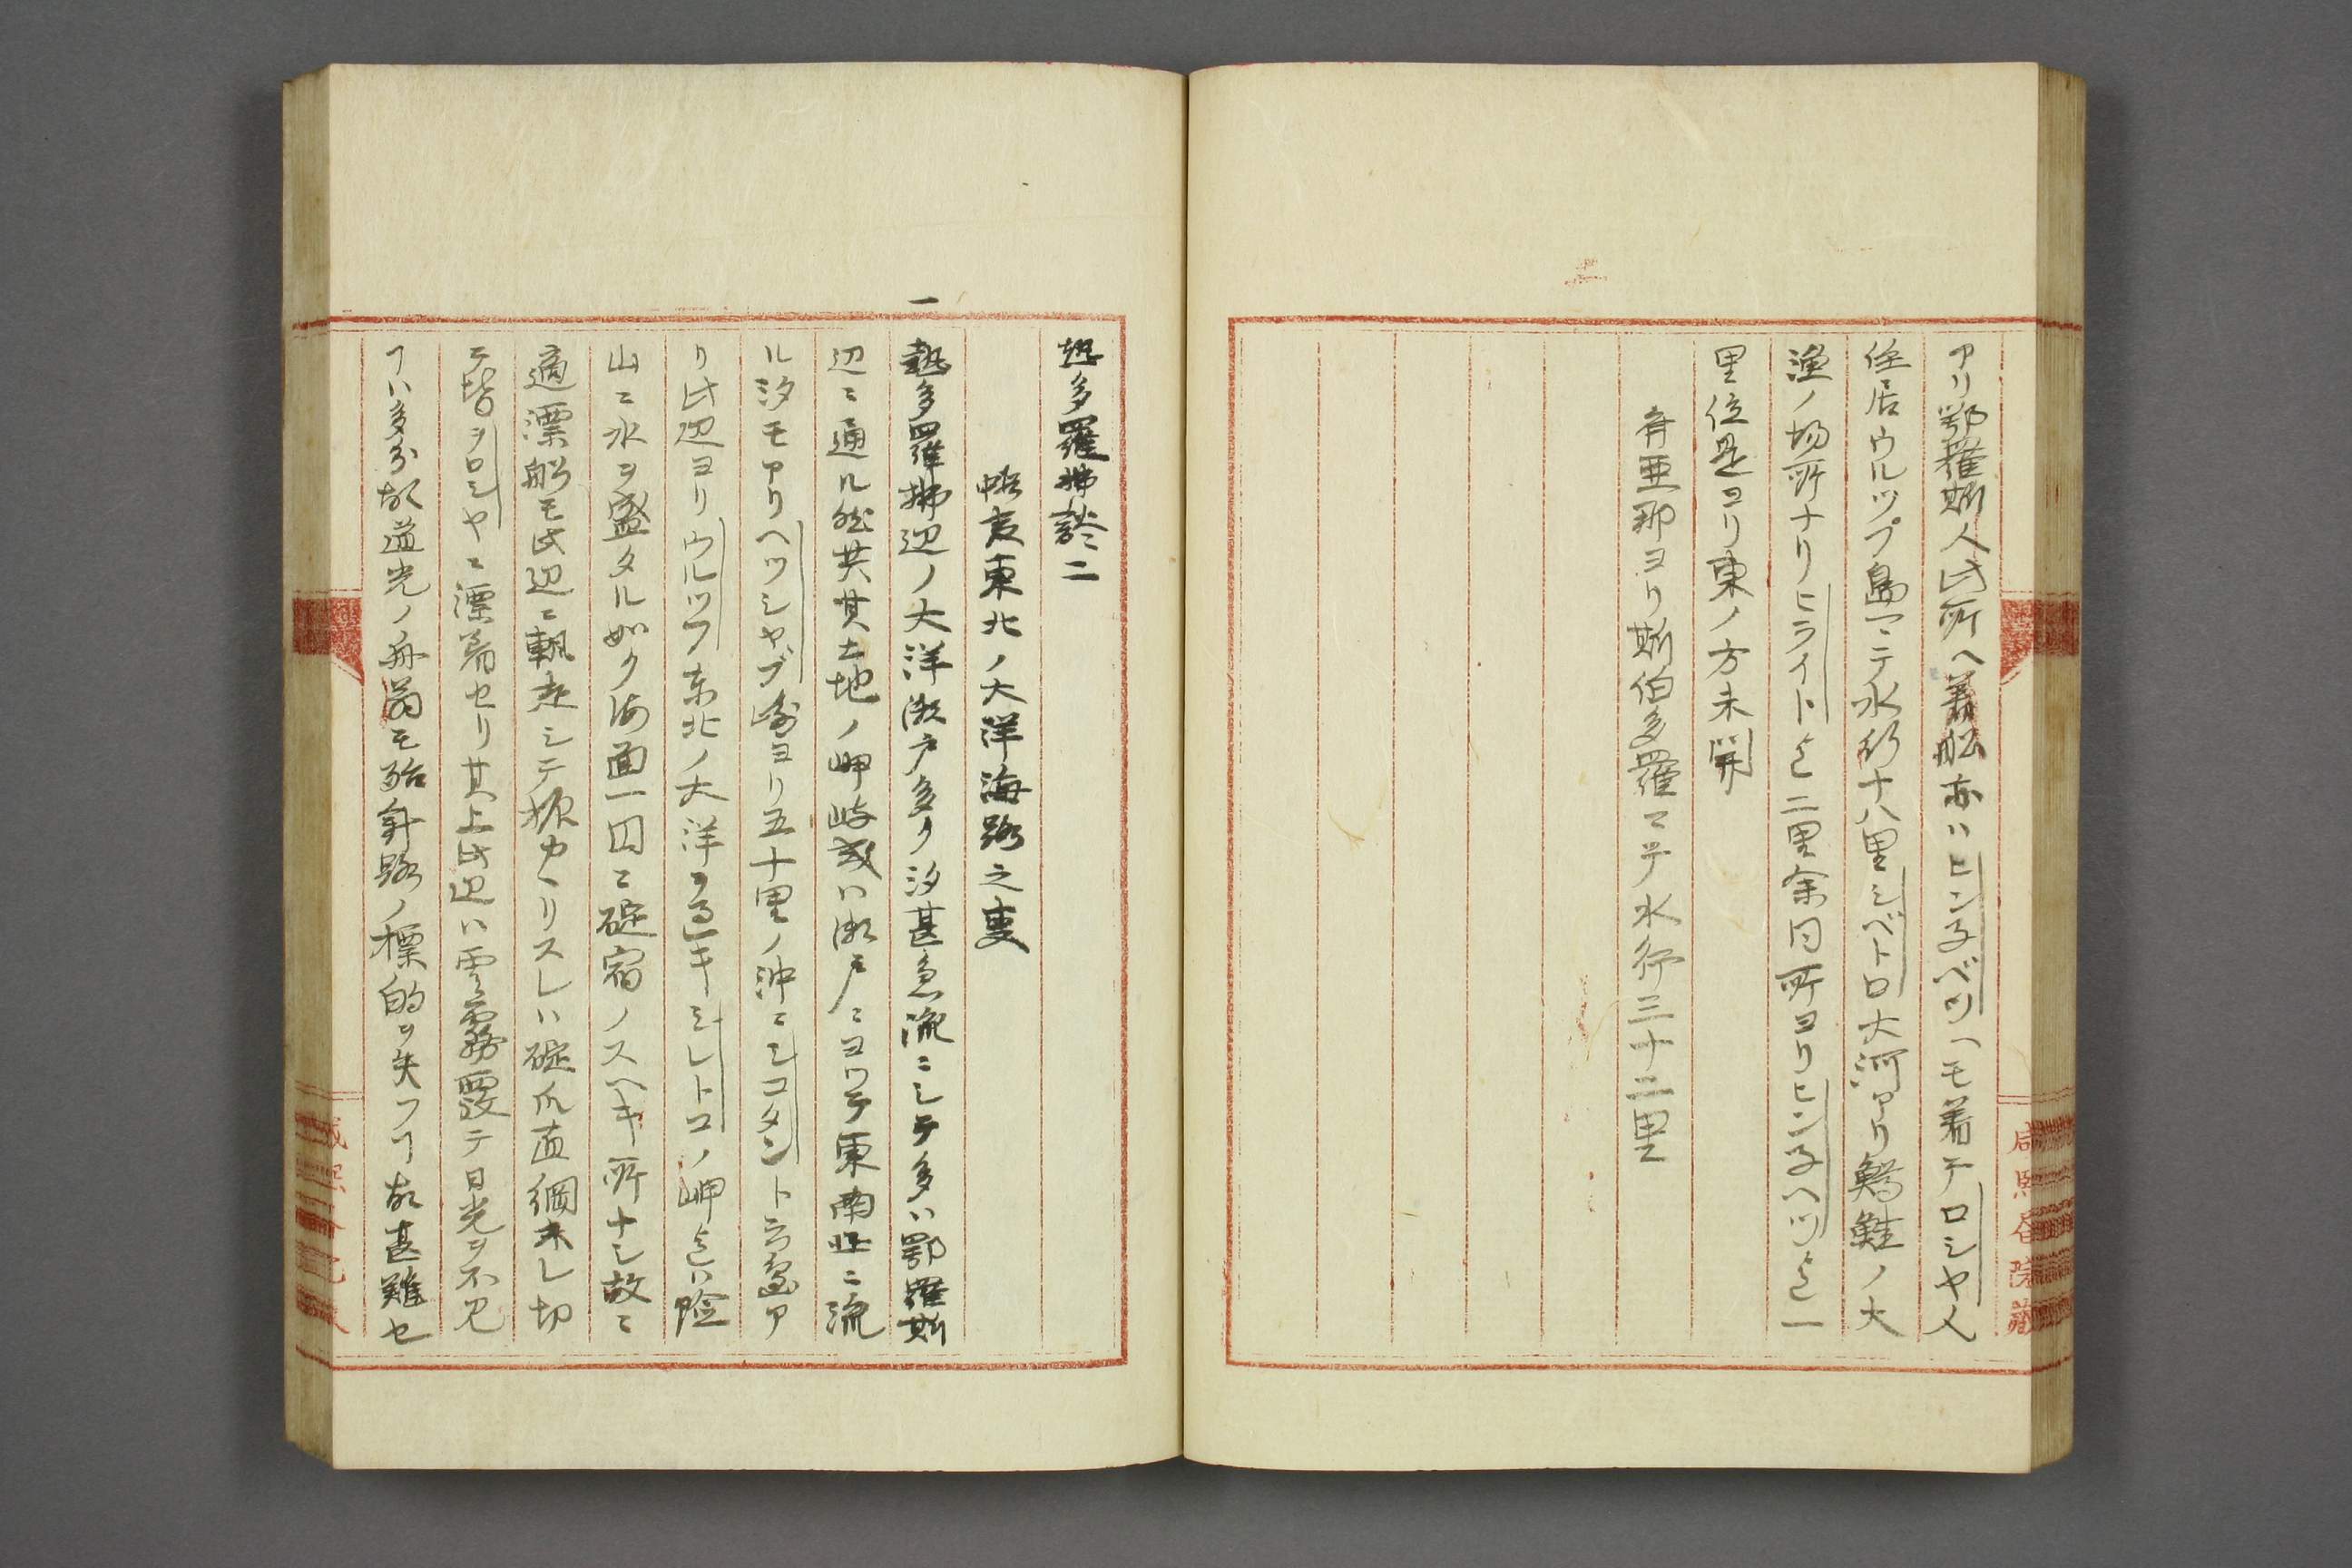 アリ鄂羅斯人此所ヘ着船亦ハヒンネベツヘモ着テロシヤ人
住居ウルツプ島マテ水行十八里シベトロ大河アリ鱒鮭ノ大
漁ノ場所ナリヒライト迄二里余同所ヨリヒンネヘツ迄一
里位是ヨリ東ノ方未開
斉亜那ヨリ斯伯多羅マテ水行三十二里
咸熈
院蔵
多羅拂談二
夷東北ノ大洋海路之事
一
多羅拂辺ノ大洋瀬戸多ク汐甚急流ニシテ多ハ鄂羅斯
辺ニ通ル然共其土地ノ岬崎或ハ瀬戸ニヨリテ東南北ニ流
ル汐モアリヘツシヤブ崎ヨリ五十里ノ沖ニシコタント云島ア
リ此辺ヨリウルツフ東北ノ大洋ヲ過キシレトコノ岬迄ハ険
山ニ氷ヲ盛タル如ク海面一円ニ碇宿ノスヘキ所ナシ故ニ
適漂船モ此辺ニ颿走シテ振カヽリスレハ碇爪直綱未レ切
テ皆ヲロシヤニ漂着セリ其上此辺ハ雲霧覆テ日光ヲ不見
ヿハ多分故道光ノ舟 モ殆針路ノ標的ヲ失フヿ故甚難セ